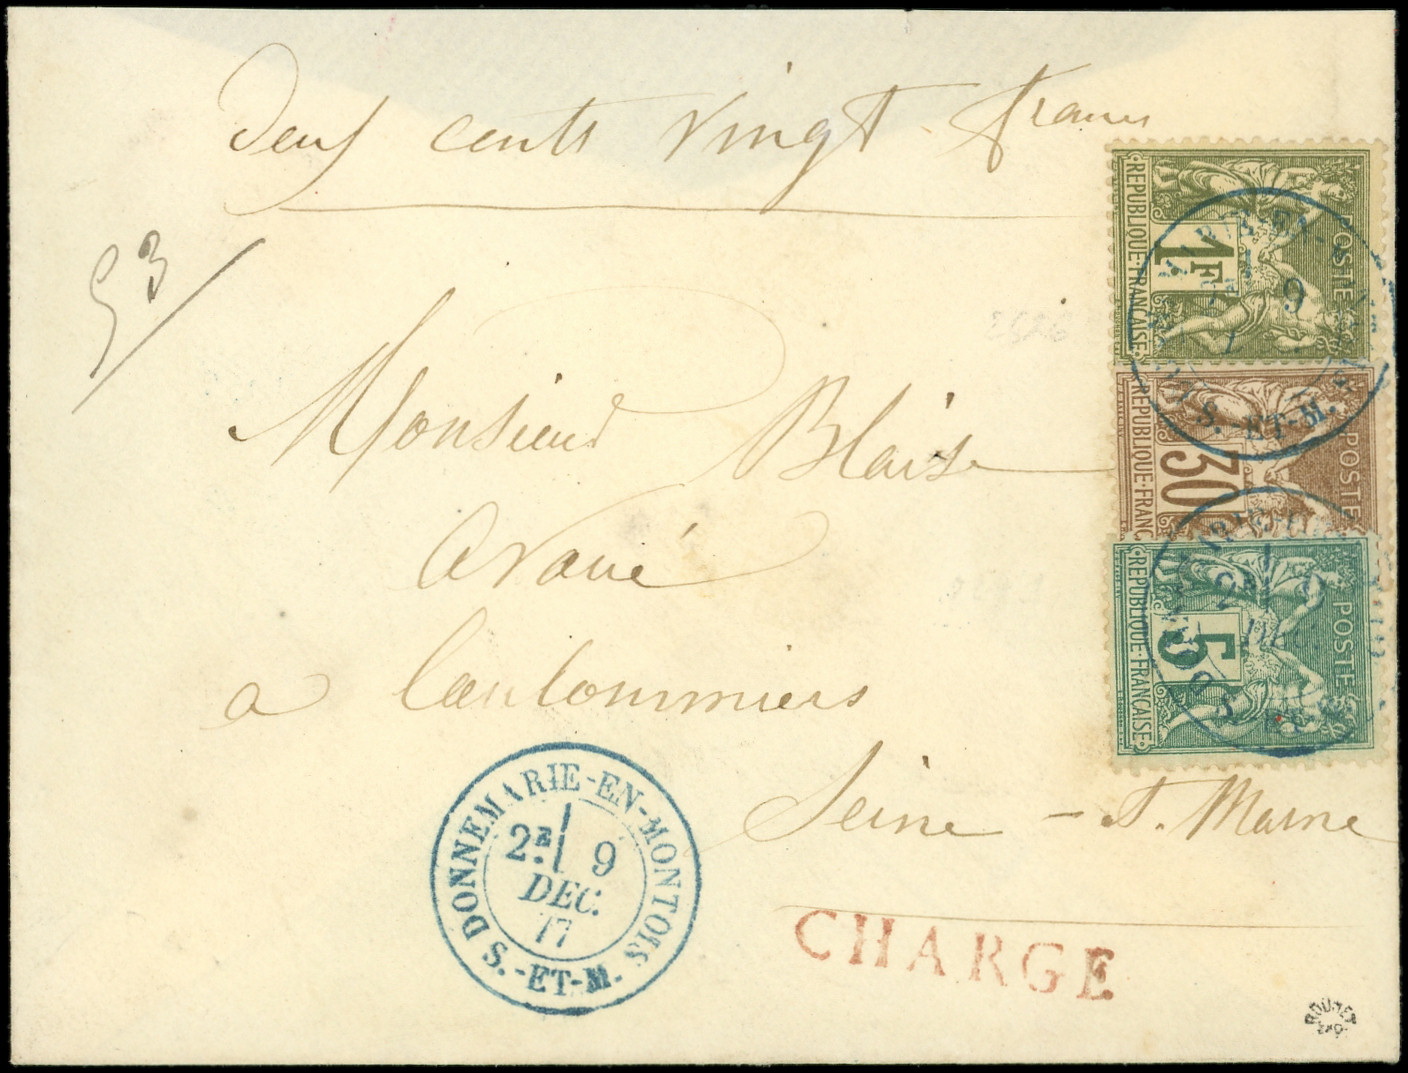 Deux cents vingt francs
93
Monsieur Blaise
Avoué
a Coulommiers
Seine - et. Marne
REPUBLIQUE·FRANÇAISE
1F
POSTE
S.-ET-M.
9
REPUBLIQUE·FRANC
30
POSTE
REPUBLIQUE·FRANÇAISE
5
POSTE
2E 9
DONNEMARIE-EN-MONTOIS
2E 9
DEC.
77
S.-ET-M.
CHARGE
ROUMET